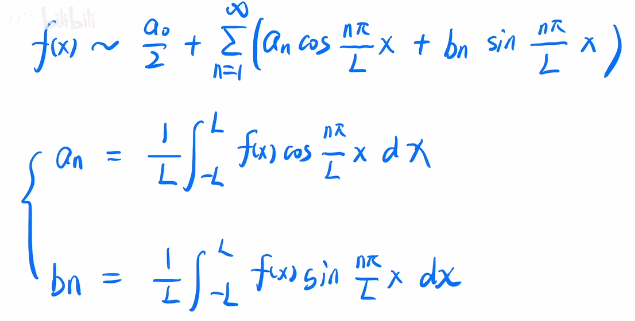 f(x) ~ a₀/2 + ∑_{n=1}^{∞} (aₙ cos nπ/L x + bₙ sin nπ/L x)
{ aₙ = 1/L ∫_{-L}^{L} f(x) cos nπ/L x dx
bₙ = 1/L ∫_{-L}^{L} f(x) sin nπ/L x dx